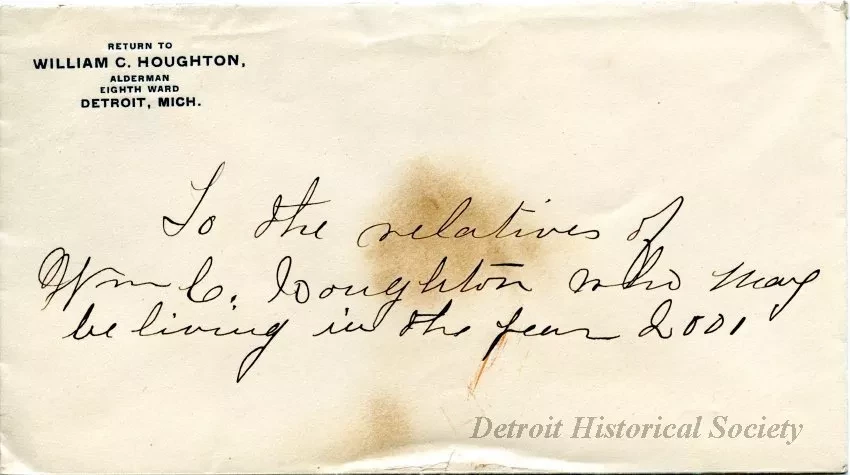 RETURN TO
WILLIAM C. HOUGHTON,
ALDERMAN
EIGHTH WARD
DETROIT, MICH.
To the relatives of
Wm C. Houghton who may
be living in the year 2001
Detroit Historical Society